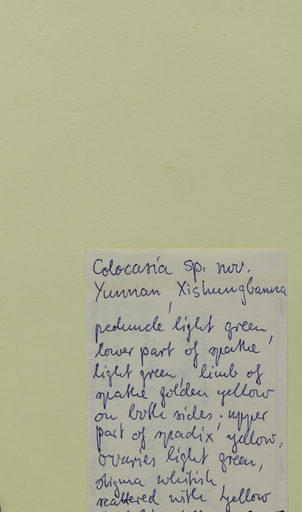 Colocasia sp. nov.
Yunnan Xishungbanna
peduncle light green,
lower part of spathe
light green, limb of
spathe golden yellow
on both sides. upper
part of spadix yellow,
ovaries light green,
stigma whitish
scattered with yellow